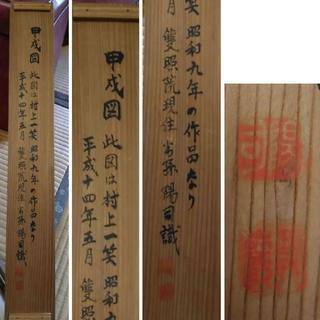 甲戌図
此図は村上一笑 昭和九年の作品なり
平成十四年五月 雙照院現住 肖孫陽司識
甲戌図
此図は村上一笑 昭和九
平成十四年五月 雙照
笑 昭和九年の作品なり
月 雙照院現住 肖孫陽司識